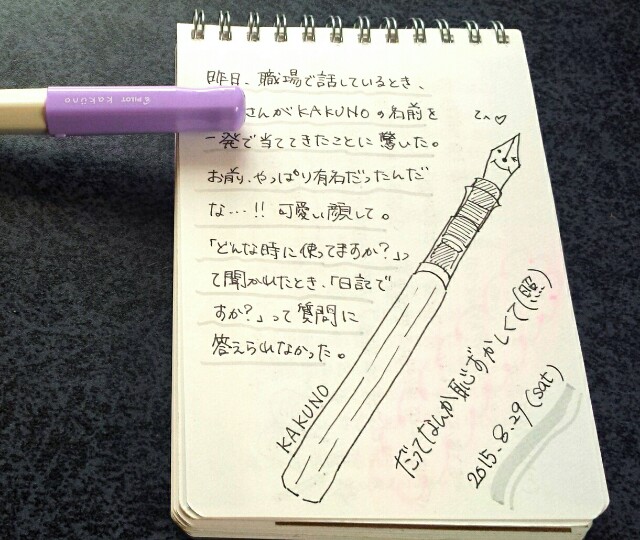 昨日、職場で話しているとき、
さんがKAKUNOの名前を
一発で当ててきたことに驚した。
お前、やっぱり有名だったんだ
な…!! 可愛い顔して。
「どんな時に使ってますか?」っ
て聞かれたとき、「日記で
すか?」って質問に
答えられなかった。
てへ♡
KAKUNO
だってなんか恥ずかしくて(照)
2015.8.29(sat)
PILOT kaküno